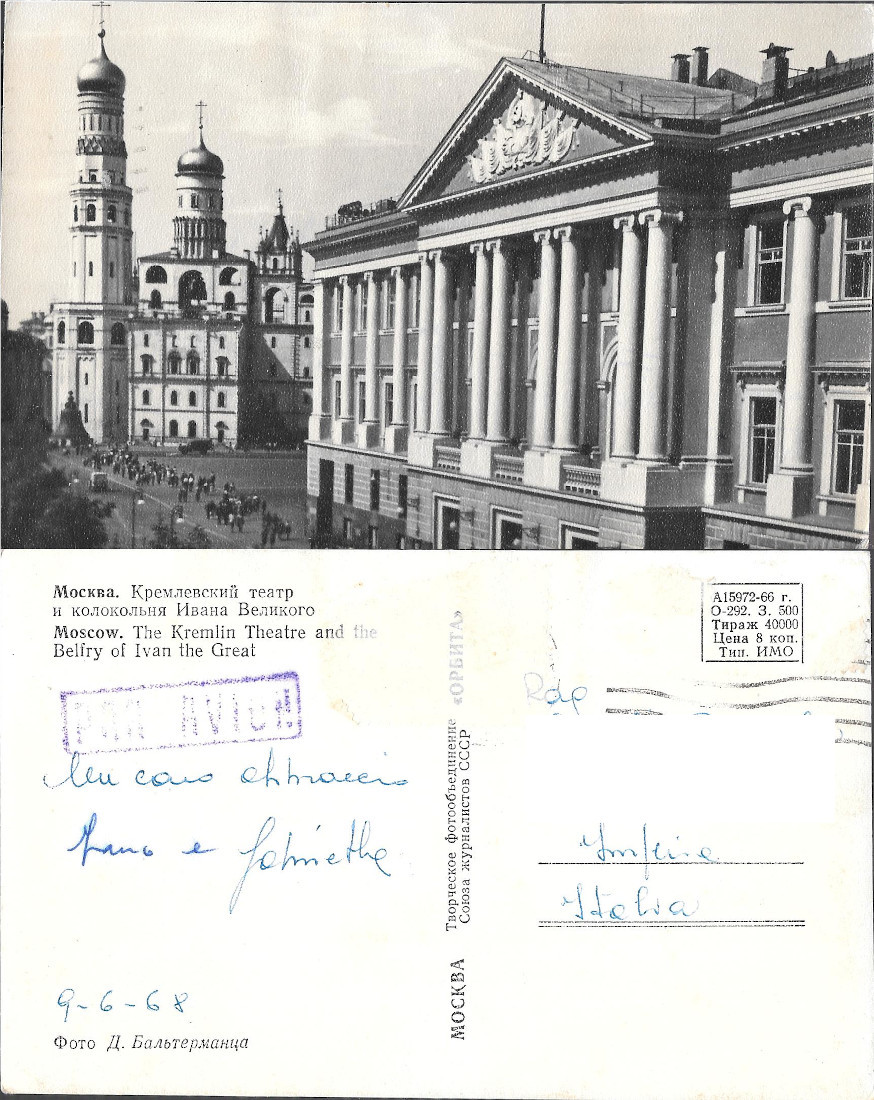 Москва. Кремлевский театр
и колокольня Ивана Великого
Moscow. The Kremlin Theatre and the
Belfry of Ivan the Great
PAR AVION
Un caro abbraccio
e
9-6-68
Фото Д. Бальтерманца
МОСКВА
Творческое фотообъединение «ОРБИТА»
Союза журналистов СССР
А15972-66 г.
О-292. З. 500
Тираж 40000
Цена 8 коп.
Тип. ИМО
Imperia
Italia